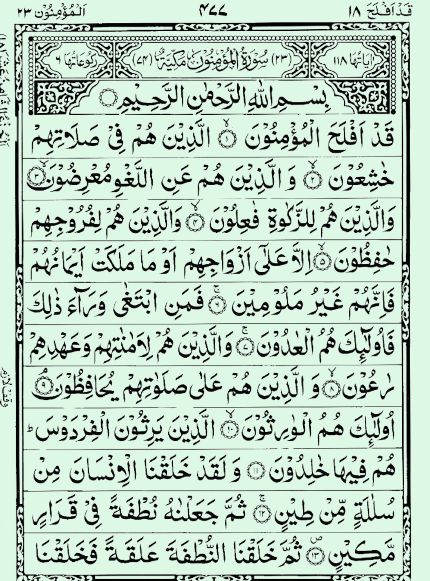 قَدْ اَفْلَحَ ١٨ ٤٧٧ اَلْمُؤْمِنُوْن ٢٣
اٰيَاتُهَا ١١٨ (٢٣) سُوْرَةُ الْمُؤْمِنُوْنَ مَكِّيَّةٌ (٧٤) رُكُوْعَاتُهَا ٦
بِسْمِ اللّٰهِ الرَّحْمٰنِ الرَّحِيْمِ
قَدْ اَفْلَحَ الْمُؤْمِنُوْنَ ۙ﴿۱﴾ الَّذِيْنَ هُمْ فِيْ صَلَاتِهِمْ
خٰشِعُوْنَ ۙ﴿۲﴾ وَالَّذِيْنَ هُمْ عَنِ اللَّغْوِ مُعْرِضُوْنَ ۙ﴿۳﴾
وَالَّذِيْنَ هُمْ لِلزَّكٰوةِ فٰعِلُوْنَ ۙ﴿۴﴾ وَالَّذِيْنَ هُمْ لِفُرُوْجِهِمْ
حٰفِظُوْنَ ۙ﴿۵﴾ اِلَّا عَلٰٓى اَزْوَاجِهِمْ اَوْ مَا مَلَكَتْ اَيْمَانُهُمْ
فَاِنَّهُمْ غَيْرُ مَلُوْمِيْنَ ۚ﴿۶﴾ فَمَنِ ابْتَغٰى وَرَآءَ ذٰلِكَ
فَاُولٰٓئِكَ هُمُ الْعٰدُوْنَ ۚ﴿۷﴾ وَالَّذِيْنَ هُمْ لِاَمٰنٰتِهِمْ وَعَهْدِهِمْ
رٰعُوْنَ ۙ﴿۸﴾ وَالَّذِيْنَ هُمْ عَلٰى صَلَوٰتِهِمْ يُحَافِظُوْنَ ۘ﴿۹﴾
اُولٰٓئِكَ هُمُ الْوٰرِثُوْنَ ۙ﴿۱۰﴾ الَّذِيْنَ يَرِثُوْنَ الْفِرْدَوْسَ ؕ
هُمْ فِيْهَا خٰلِدُوْنَ ﴿۱۱﴾ وَلَقَدْ خَلَقْنَا الْاِنْسَانَ مِنْ
سُلٰلَةٍ مِّنْ طِيْنٍ ۚ﴿۱۲﴾ ثُمَّ جَعَلْنٰهُ نُطْفَةً فِيْ قَرَارٍ
مَّكِيْنٍ ۪﴿۱۳﴾ ثُمَّ خَلَقْنَا النُّطْفَةَ عَلَقَةً فَخَلَقْنَا